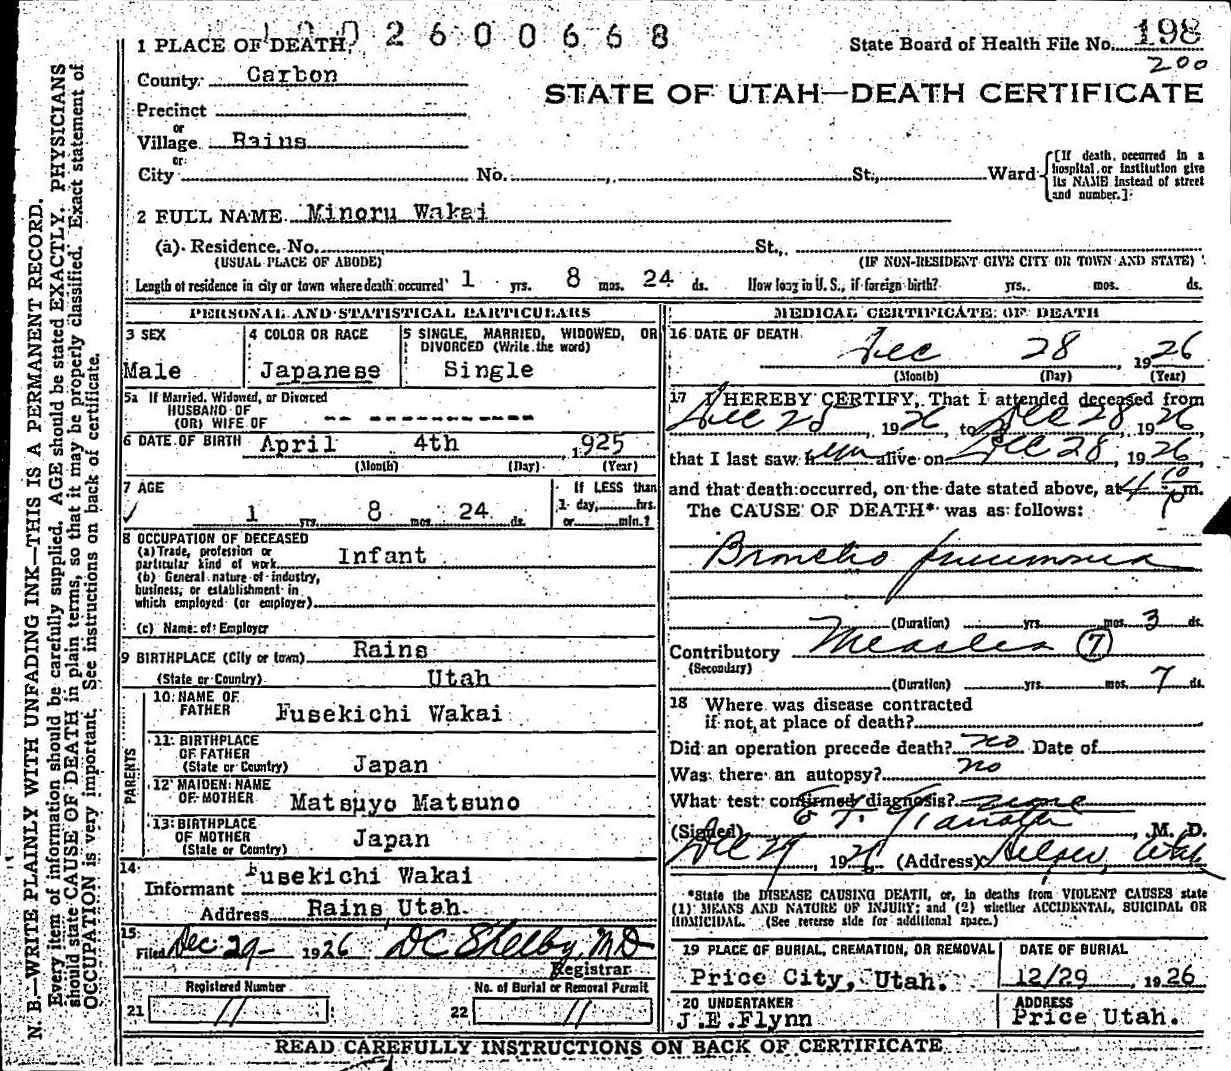 1 0 0 2 6 0 0 6 6 8
1 PLACE OF DEATH
State Board of Health File No. 198
200
County Carbon
STATE OF UTAH—DEATH CERTIFICATE
Precinct
or
Village Rains
or
City No. St., Ward
[If death occurred in a hospital or institution give its NAME instead of street and number.]
2 FULL NAME Minoru Wakai
(a) Residence. No. St.,
(USUAL PLACE OF ABODE) (IF NON-RESIDENT GIVE CITY OR TOWN AND STATE)
Length of residence in city or town where death occurred 1 yrs. 8 mos. 24 ds. How long in U. S., if foreign birth? yrs. mos. ds.
PERSONAL AND STATISTICAL PARTICULARS
3 SEX
Male
4 COLOR OR RACE
Japanese
5 SINGLE, MARRIED, WIDOWED, OR DIVORCED (Write the word)
Single
5a If Married, Widowed, or Divorced
HUSBAND OF
(OR) WIFE OF -- ----------
6 DATE OF BIRTH April 4th, 1925
(Month) (Day) (Year)
7 AGE
✓ 1 yrs. 8 mos. 24 ds.
If LESS than
1 day, hrs.
or min.?
8 OCCUPATION OF DECEASED
(a) Trade, profession or
particular kind of work Infant
(b) General nature of industry,
business, or establishment in
which employed (or employer)
(c) Name of Employer
9 BIRTHPLACE (City or town) Rains
(State or Country) Utah
PARENTS
10 NAME OF
FATHER Fusekichi Wakai
11 BIRTHPLACE
OF FATHER
(State or Country) Japan
12 MAIDEN NAME
OF MOTHER Matsuyo Matsuno
13 BIRTHPLACE
OF MOTHER
(State or Country) Japan
14
Informant Fusekichi Wakai
Address Rains Utah
15
Filed Dec 29 1926 D C Shelby, MD
Registrar
Registered Number
21 11
No. of Burial or Removal Permit
22 11
MEDICAL CERTIFICATE OF DEATH
16 DATE OF DEATH
Dec 28 1926
(Month) (Day) (Year)
17 I HEREBY CERTIFY, That I attended deceased from
Dec 25, 1926, to Dec 28, 1926
that I last saw him alive on Dec 28, 1926,
and that death occurred, on the date stated above, at 4 10 p m.
The CAUSE OF DEATH* was as follows:
Broncho pneumonia
(Duration) yrs. mos. 3 ds.
Contributory Measles 7
(Secondary)
(Duration) yrs. mos. 7 ds.
18 Where was disease contracted
if not at place of death?
Did an operation precede death? no Date of
Was there an autopsy? no
What test confirmed diagnosis? none
(Signed) , M. D.
Dec 29, 1926 (Address) Helper, Utah
*State the DISEASE CAUSING DEATH, or, in deaths from VIOLENT CAUSES state
(1) MEANS AND NATURE OF INJURY; and (2) whether ACCIDENTAL, SUICIDAL OR
HOMICIDAL. (See reverse side for additional space.)
19 PLACE OF BURIAL, CREMATION, OR REMOVAL
Price City, Utah.
DATE OF BURIAL
12/29, 1926
20 UNDERTAKER
J.E.Flynn
ADDRESS
Price Utah.
READ CAREFULLY INSTRUCTIONS ON BACK OF CERTIFICATE
N. B.—WRITE PLAINLY WITH UNFADING INK—THIS IS A PERMANENT RECORD.
Every item of information should be carefully supplied. AGE should be stated EXACTLY. PHYSICIANS
should state CAUSE OF DEATH in plain terms, so that it may be properly classified. Exact statement of
OCCUPATION is very important. See instructions on back of certificate.